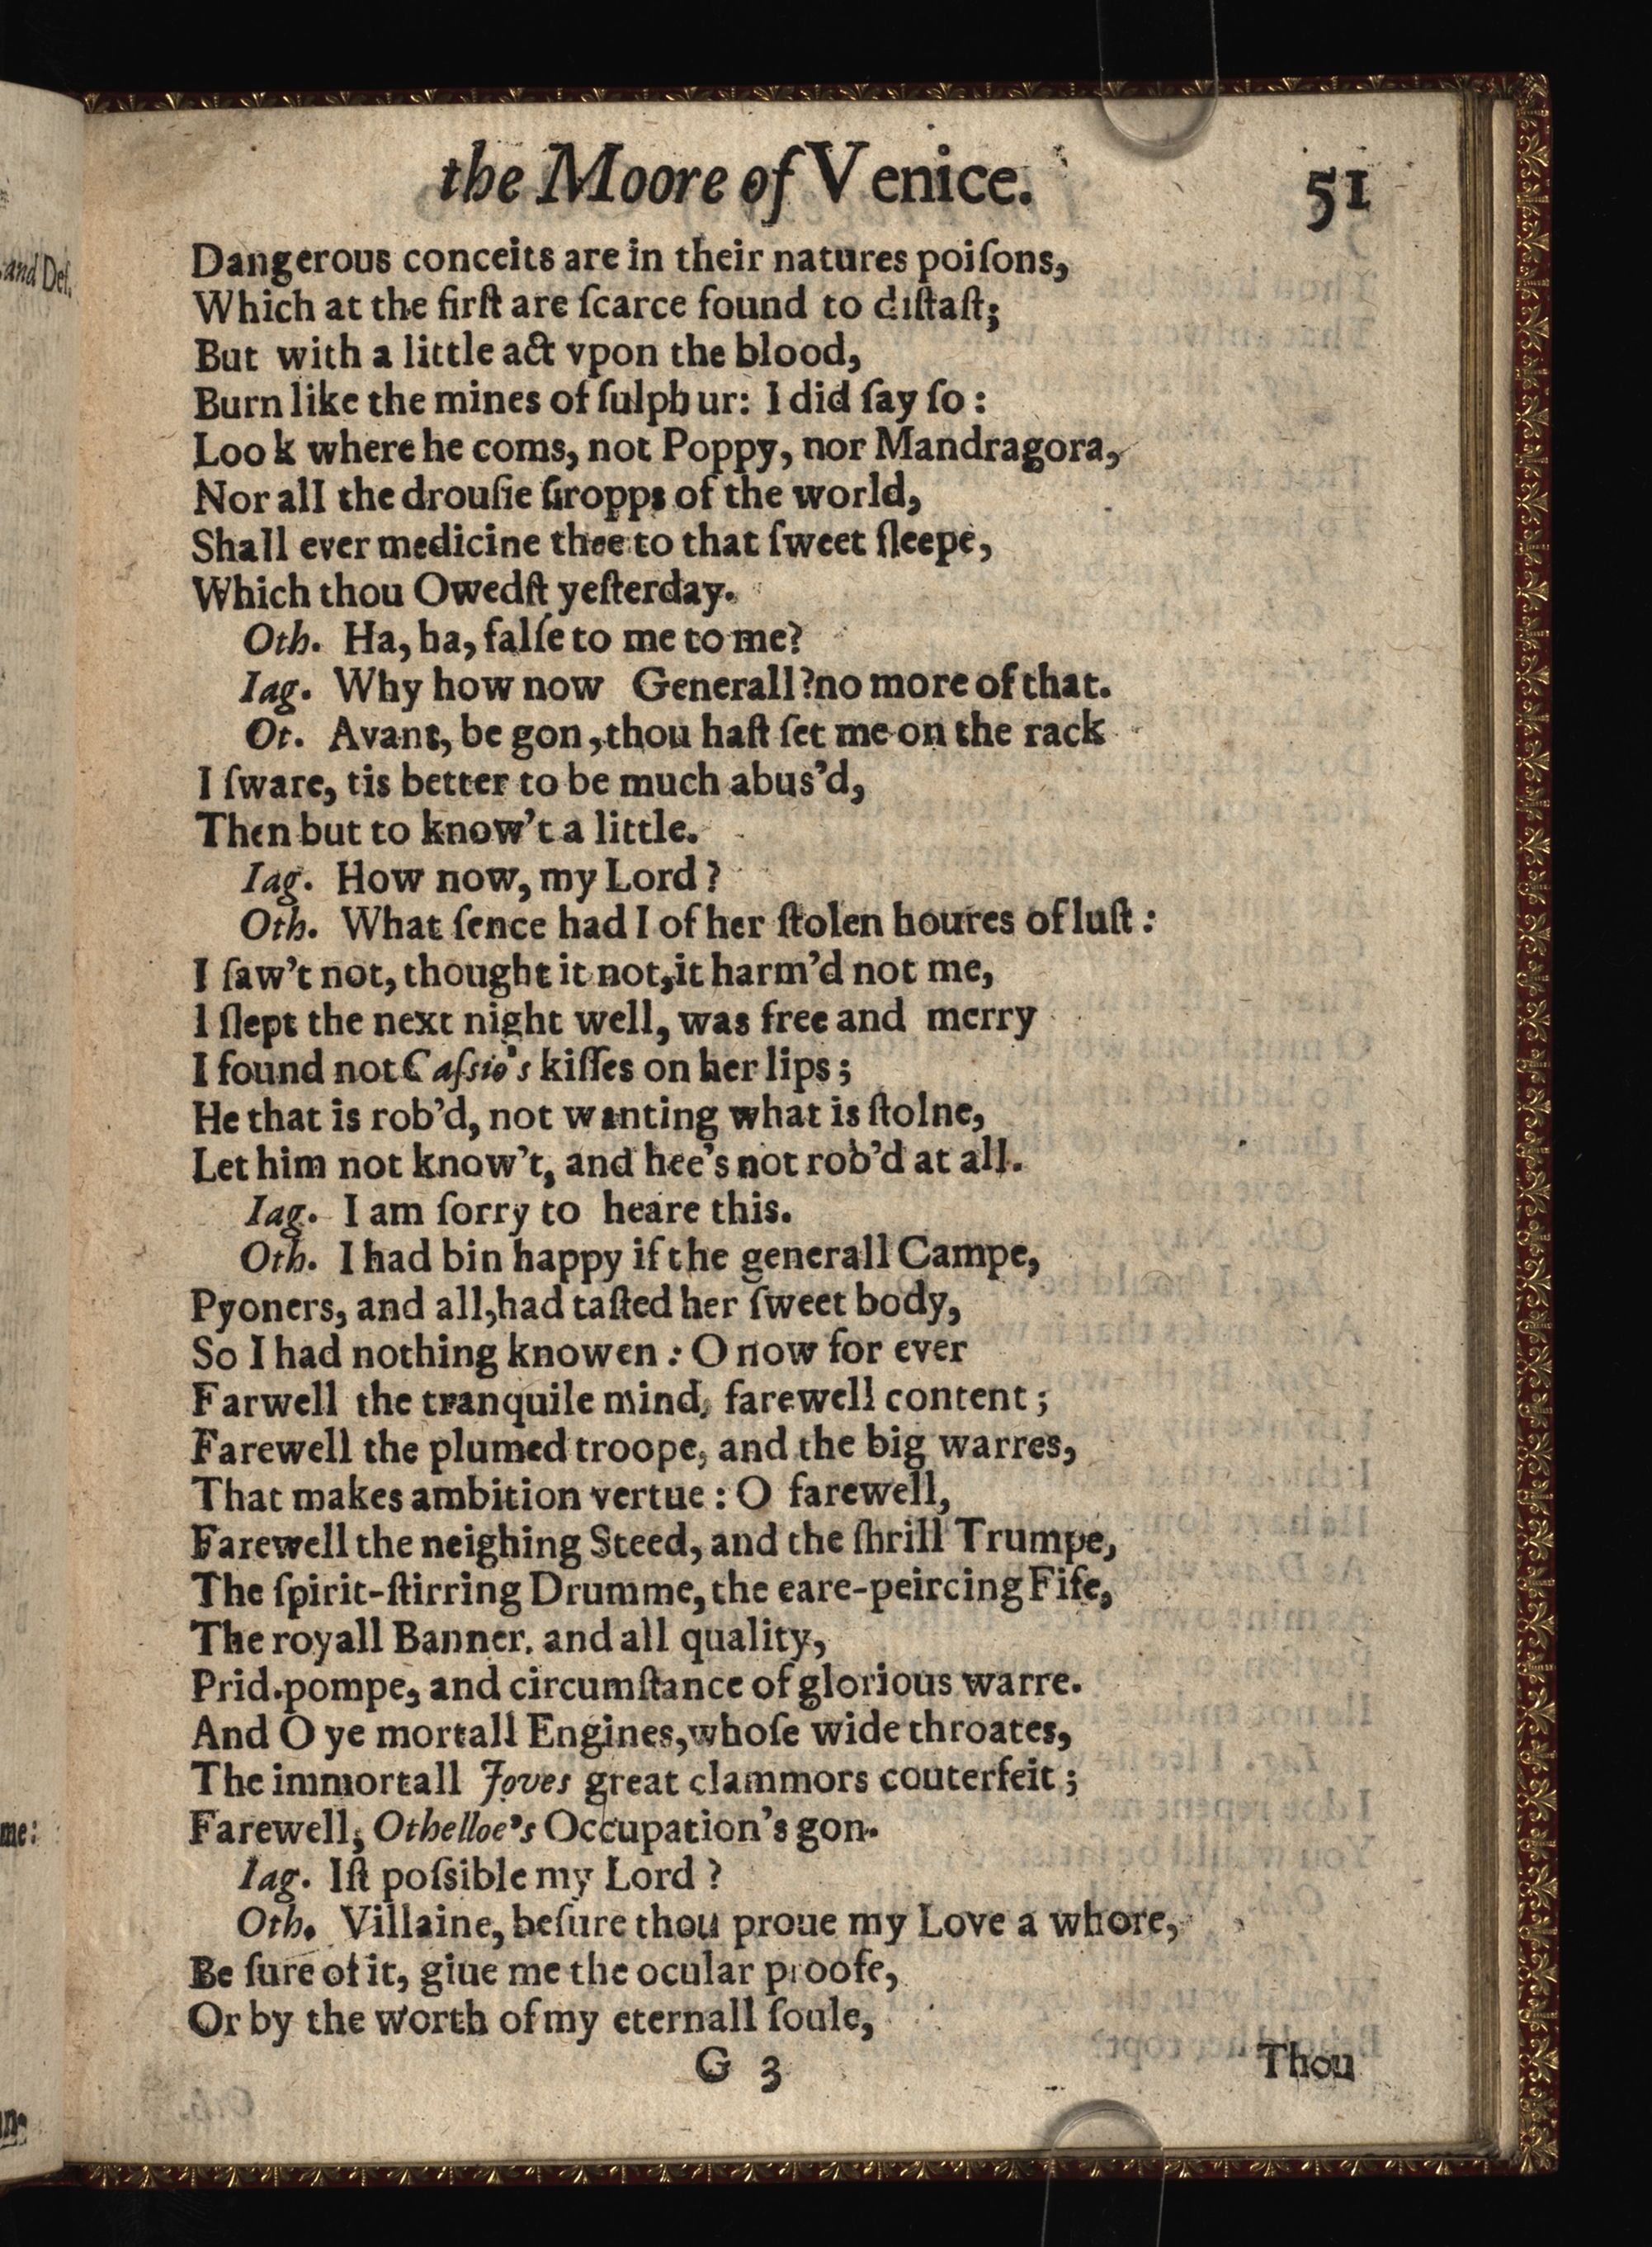 the Moore of Venice. 51
Dangerous conceits are in their natures poiſons,
Which at the firſt are ſcarce found to diſtaſt;
But with a little act vpon the blood,
Burn like the mines of ſulphur: I did ſay ſo:
Look where he coms, not Poppy, nor Mandragora,
Nor all the drouſie ſiropps of the world,
Shall ever medicine thee to that ſweet ſleepe,
Which thou Owedſt yeſterday.
Oth. Ha, ha, falſe to me to me?
Iag. Why how now Generall? no more of that.
Ot. Avant, be gon, thou haſt ſet me on the rack
I ſware, tis better to be much abus'd,
Then but to know't a little.
Iag. How now, my Lord?
Oth. What ſence had I of her ſtolen houres of luſt:
I ſaw't not, thought it not, it harm'd not me,
I ſlept the next night well, was free and merry
I found not Caſsio's kiſſes on her lips;
He that is rob'd, not wanting what is ſtolne,
Let him not know't, and hee's not rob'd at all.
Iag. I am ſorry to heare this.
Oth. I had bin happy if the generall Campe,
Pyoners, and all, had taſted her ſweet body,
So I had nothing knowen: O now for ever
Farwell the tranquile mind, farewell content;
Farewell the plumed troope, and the big warres,
That makes ambition vertue: O farewell,
Farewell the neighing Steed, and the ſhrill Trumpe,
The ſpirit-ſtirring Drumme, the eare-peircing Fife,
The royall Banner. and all quality,
Prid.pompe, and circumſtance of glorious warre.
And O ye mortall Engines, whoſe wide throates,
The immortall Joves great clammors couterfeit;
Farewell; Othelloe's Occupation's gon.
Iag. Iſt poſsible my Lord?
Oth. Villaine, beſure thou proue my Love a whore,
Be ſure of it, giue me the ocular proofe,
Or by the worth of my eternall ſoule,
G 3 Thou
and Deſ.
me: